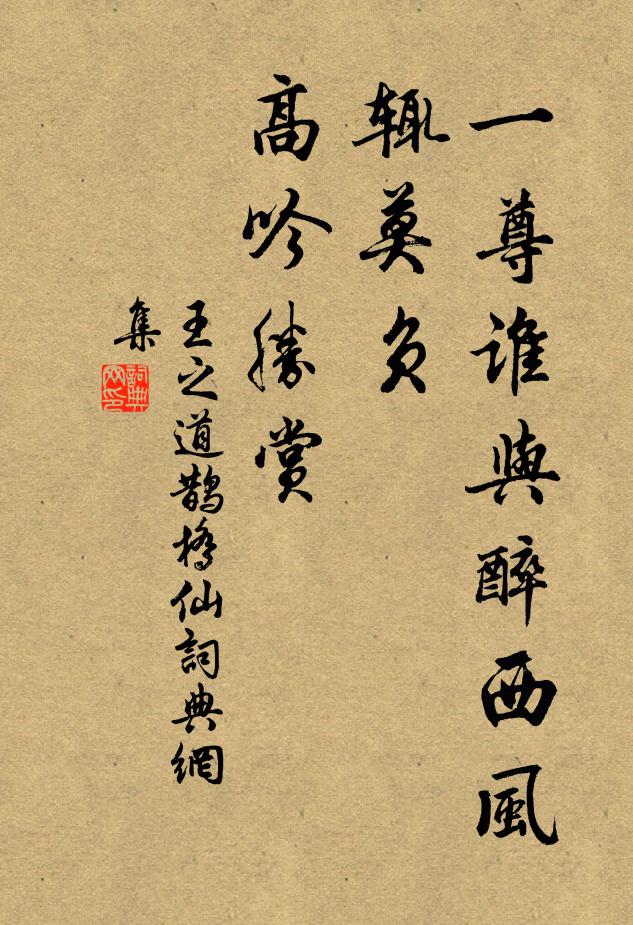 一尊誰與醉西風
輒莫負
高吟勝賞
王之道鵲橋仙詞典網
集
詞典網印